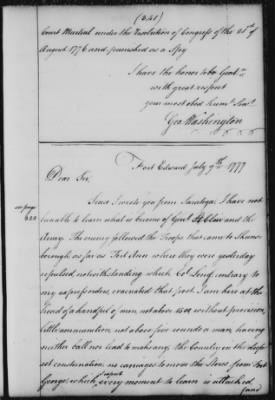 (241)
Court Martial under the Resolution of Congress of the 21st of
August 1776 and punished as a Spy
I have the honor to be Gentn
with great respect
your most obed humb Servt
Geo Washington
Fort Edward July 9th 1777
Dear Sir,
Since I wrote you from Saratoga I have not
been able to learn what is become of Genl St Clair and the
Army. The enemy followed the Troops that came to Skeens
borough, as far as Fort Ann where they were yesterday
repulsed, notwithstanding which Col. Long, contrary to
my express orders, evacuated that post. I am here at the
head of a handful of men, not above 1500, without provision,
little ammunition, not above five rounds a man, having
neither ball nor lead to make any; the Country in the deep
est consternation; no carriages to move the Stores from Fort
George, which I expect every moment to learn is attacked,
and
see page